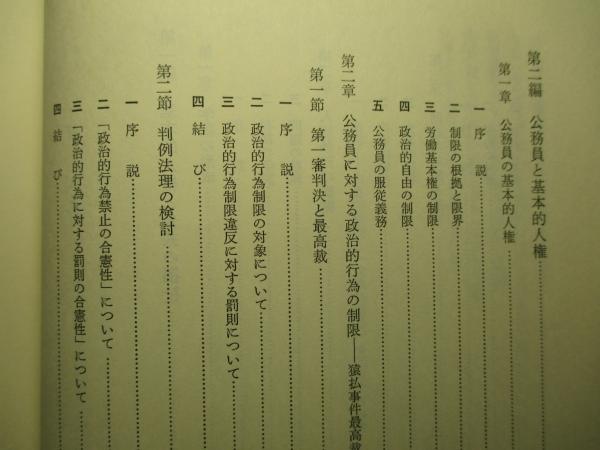 第二編 公務員と基本的人権
第一章 公務員の基本的人権
一 序説
二 制限の根拠と限界
三 労働基本権の制限
四 政治的自由の制限
五 公務員の服従義務
第二章 公務員に対する政治的行為の制限――猿払事件最高裁
第一節 第一審判決と最高裁
一 序説
二 政治的行為制限の対象について
三 政治的行為制限違反に対する罰則について
四 結び
第二節 判例法理の検討
一 序説
二 「政治的行為禁止の合憲性」について
三 「政治的行為に対する罰則の合憲性」について
四 結び